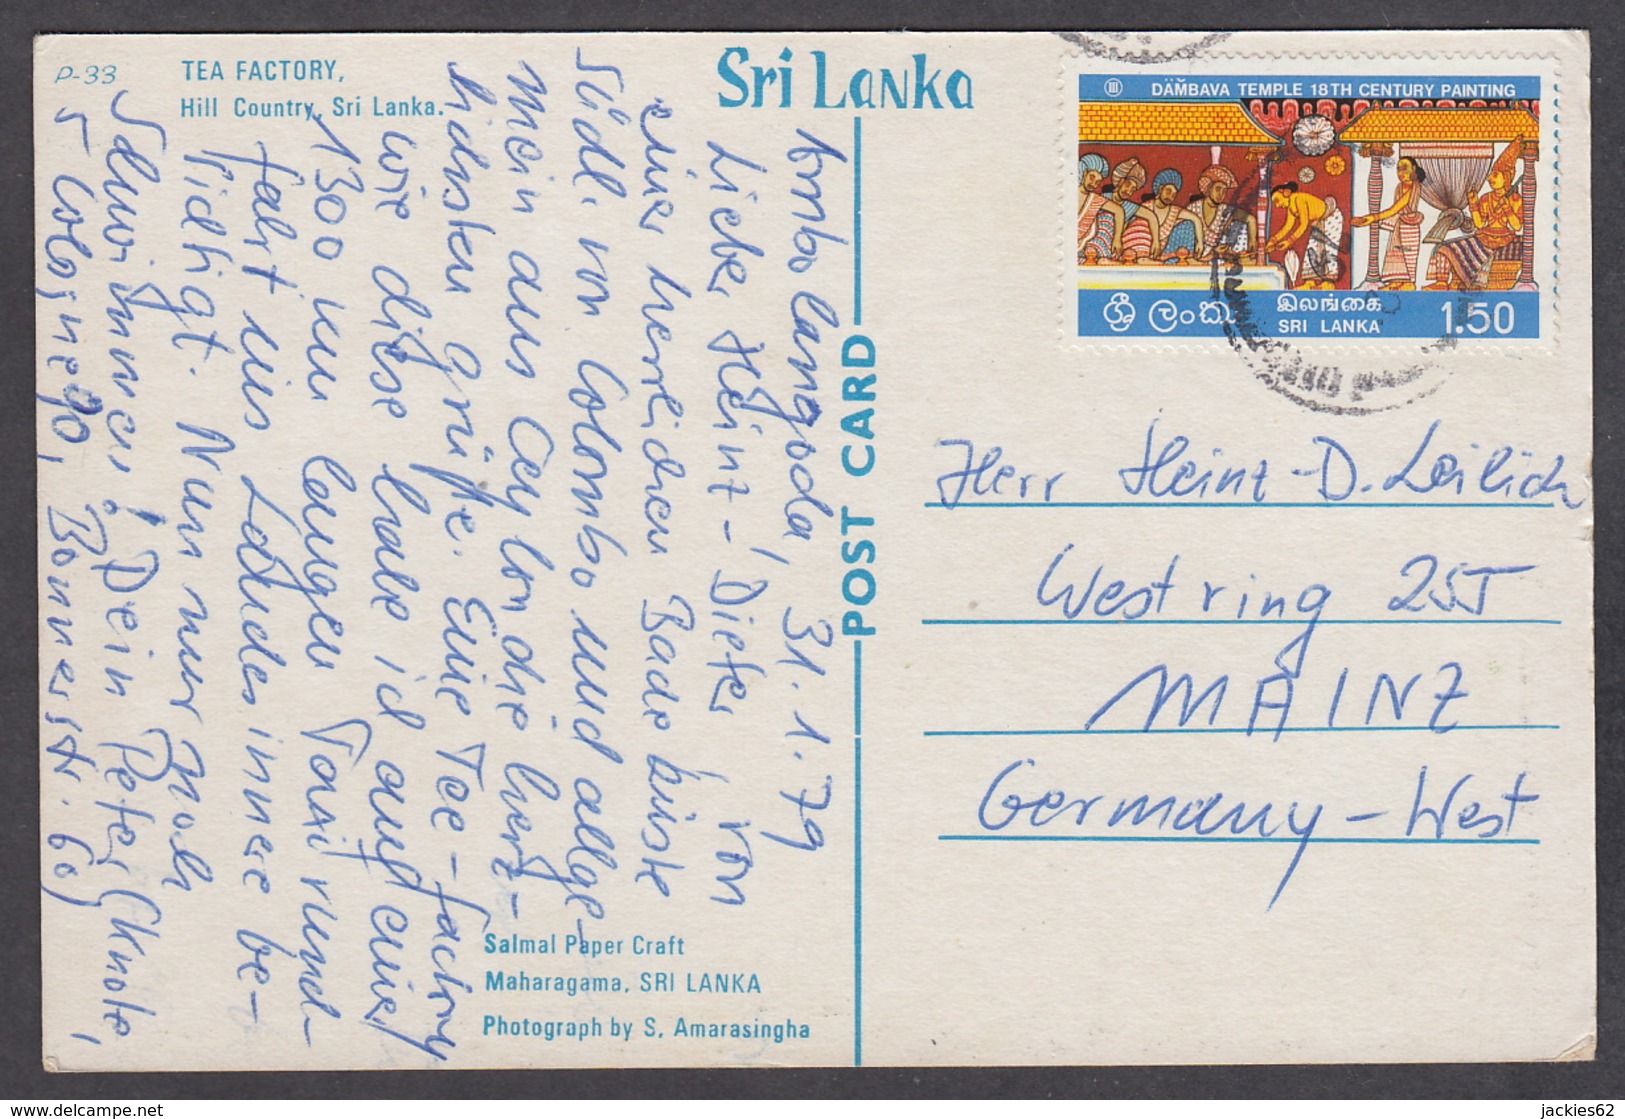 P-33
TEA FACTORY,
Hill Country, Sri Lanka.
Sri Lanka
Ambolangoda, 31.1.79
Lieber Heinz-Dieter, von
einer herrlichen Badeküste
südl. von Colombo und allge-
mein aus Ceylon die herz-
lichsten Grüße. Eine Tee-factory
wie diese habe ich auf einer
1300 km langen Taxirund-
fahrt ins Landesinnere be-
sichtigt. Nun nur noch
Schwimmen! Dein Peter (Knote,
5 Cologne 90, Bonnerstr. 60)
Salmal Paper Craft
Maharagama, SRI LANKA
Photograph by S. Amarasingha
POST CARD
III DÄMBAVA TEMPLE 18TH CENTURY PAINTING
ශ්‍රී ලංකා இலங்கை
SRI LANKA 1.50
Herr Heinz-D. Leilich
Westring 255
MAINZ
Germany-West
jackies62